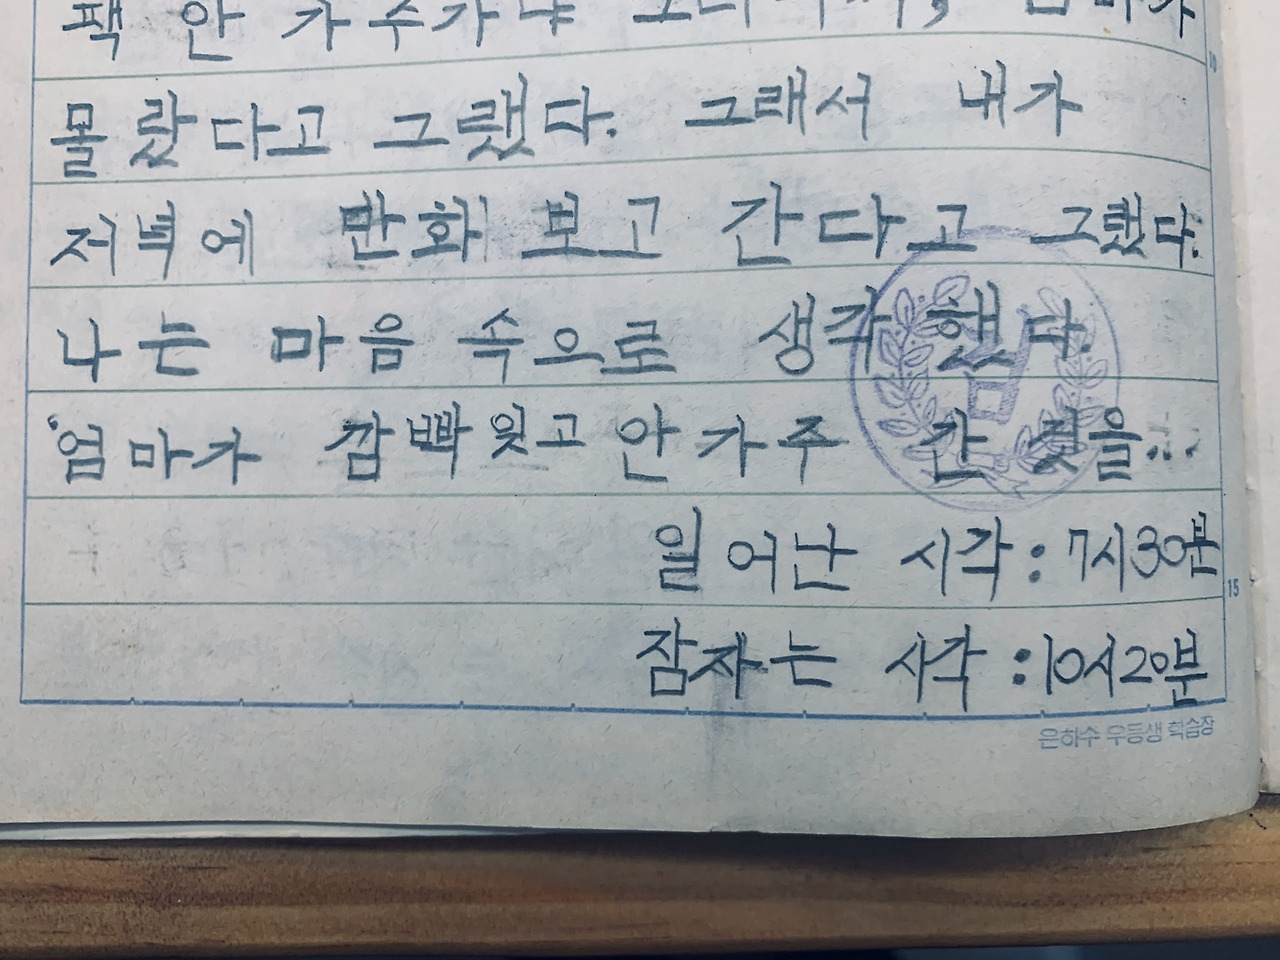 팩 안 가주가냐
몰랐다고 그랬다. 그래서 내가
저녁에 만화 보고 간다고 그랬다.
나는 마음 속으로 생각했다.
'엄마가 깜빡 잊고 안 가주 간 것을...
일어난 시각:7시30분
15
잠자는 시각:10시20분
은하수 우등생 학습장